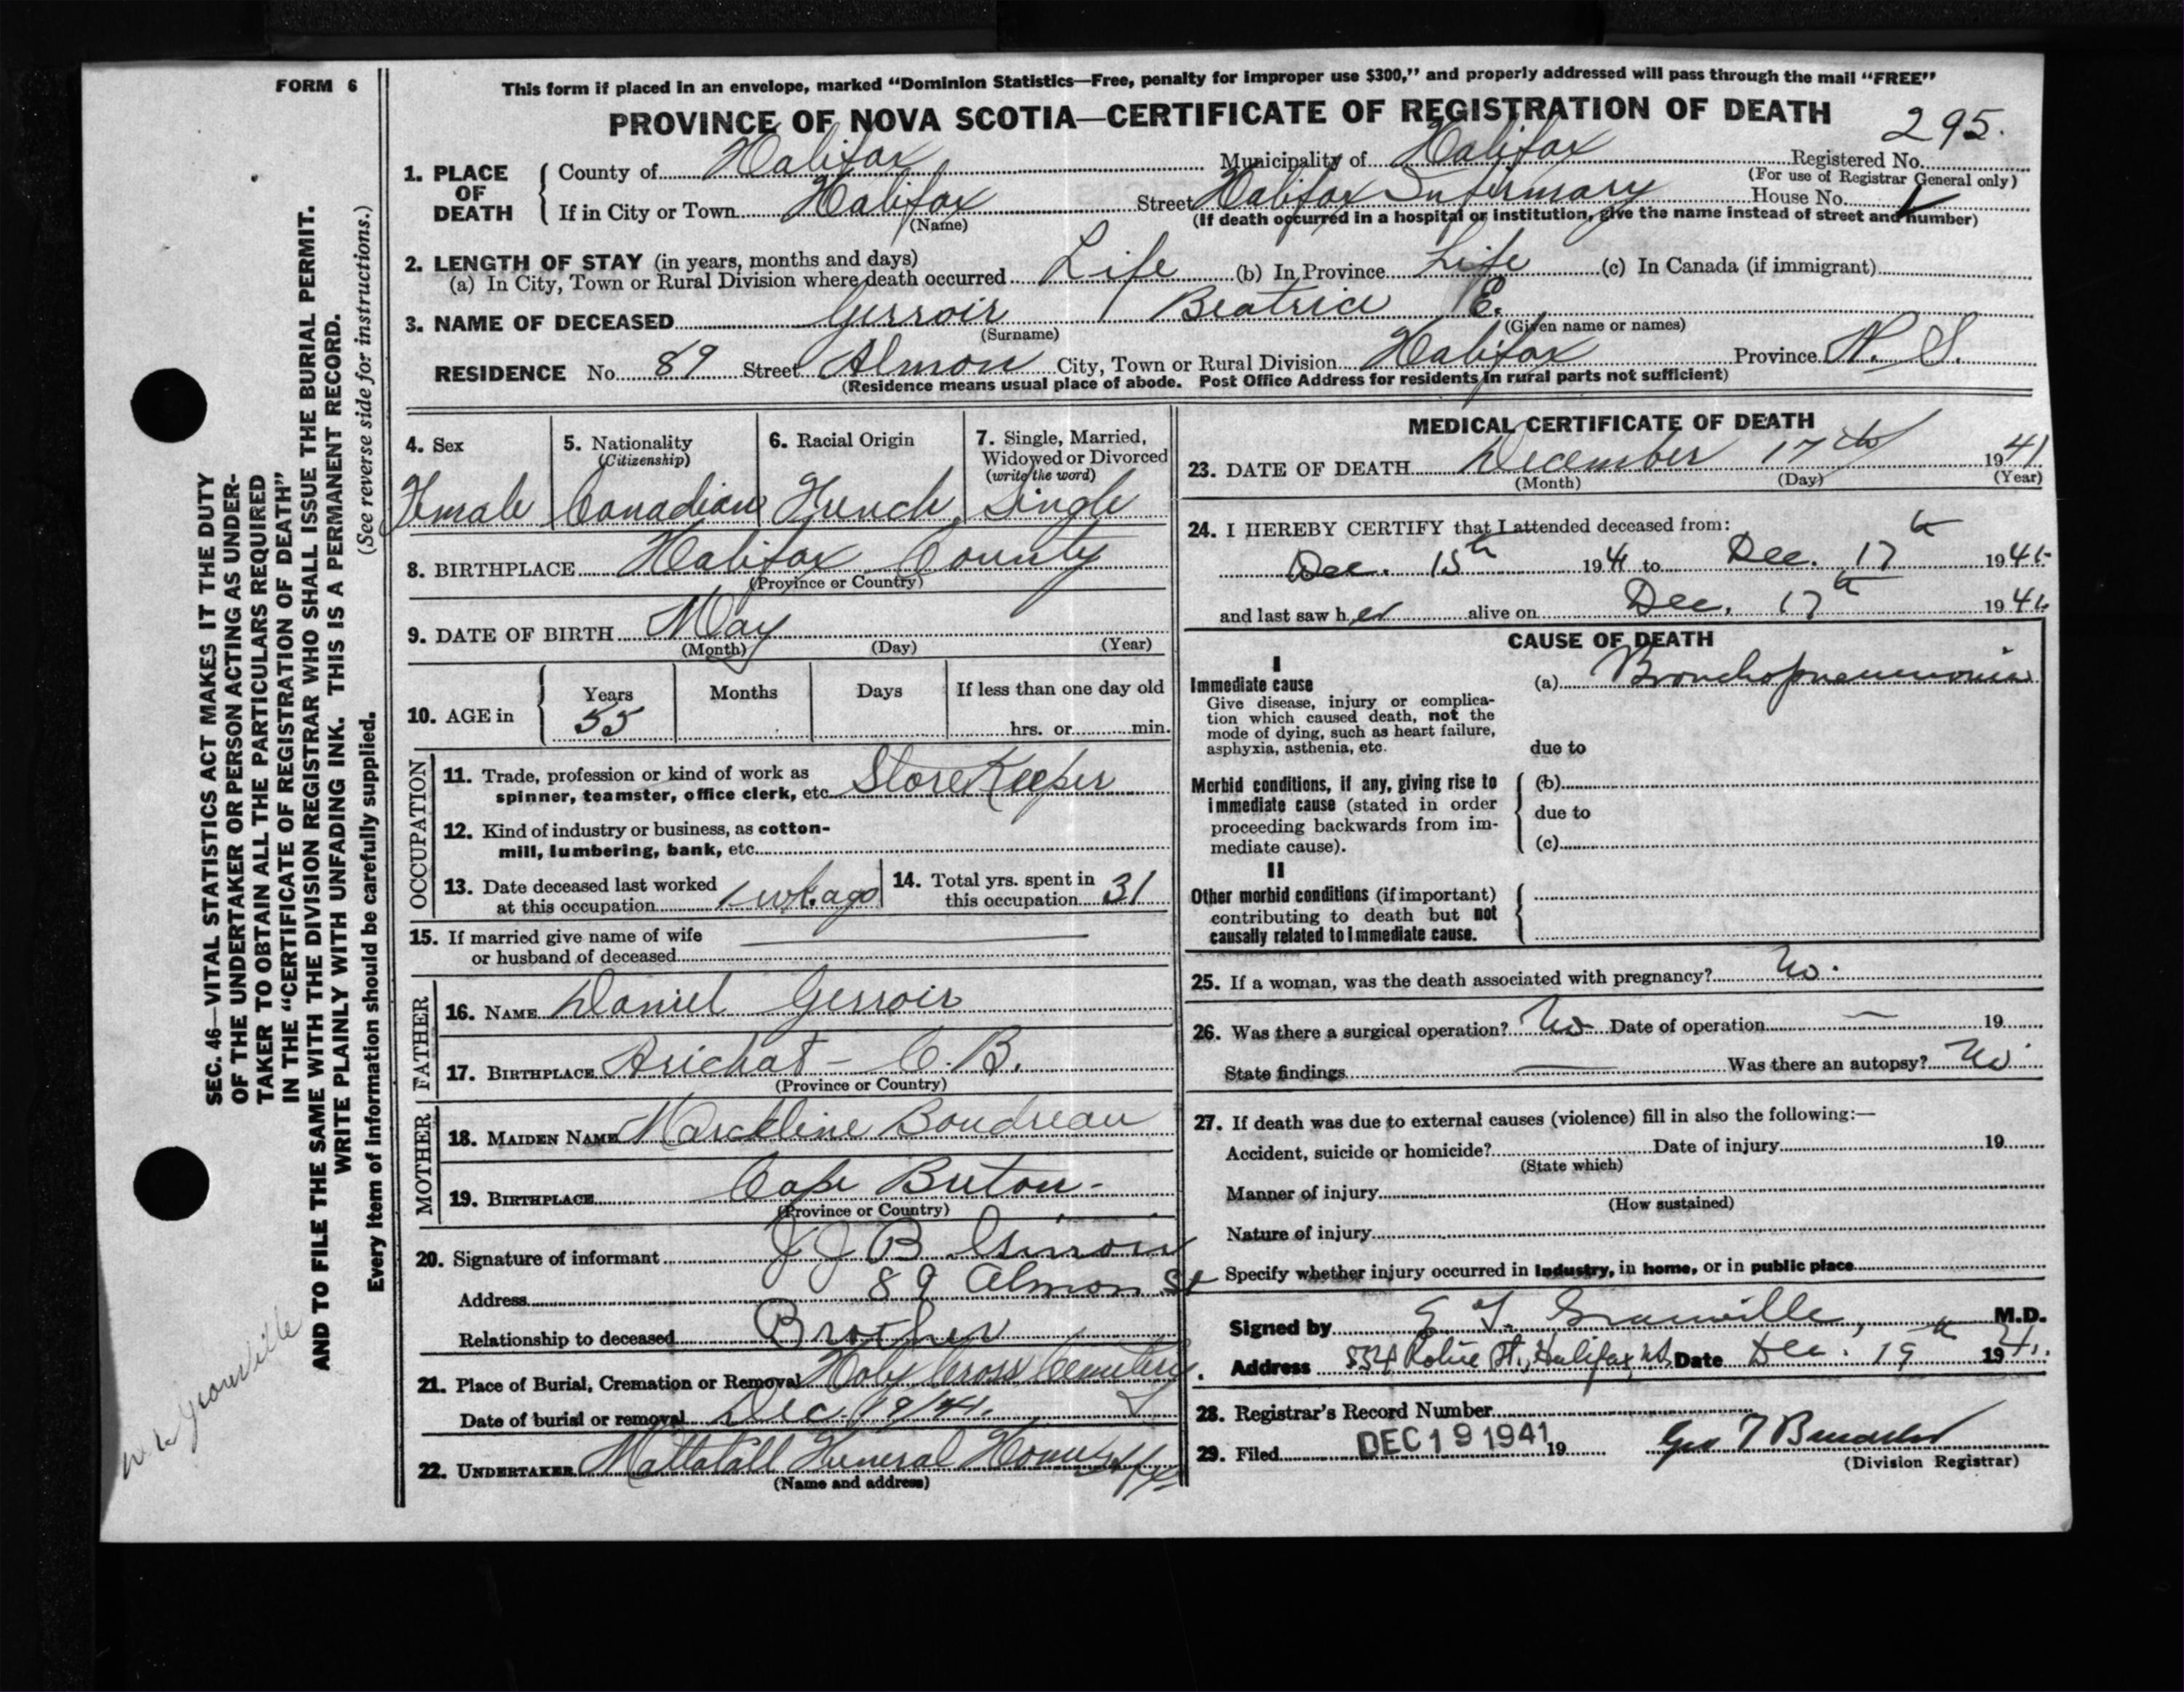 FORM 6
This form if placed in an envelope, marked "Dominion Statistics—Free, penalty for improper use $300," and properly addressed will pass through the mail "FREE"
PROVINCE OF NOVA SCOTIA—CERTIFICATE OF REGISTRATION OF DEATH
295.
1. PLACE OF DEATH County of Halifax Municipality of Halifax Registered No.
(For use of Registrar General only)
If in City or Town Halifax Street Halifax Infirmary House No.
(Name) (If death occurred in a hospital or institution, give the name instead of street and number)
2. LENGTH OF STAY (in years, months and days)
(a) In City, Town or Rural Division where death occurred Life (b) In Province Life (c) In Canada (if immigrant)
3. NAME OF DECEASED Gerroir Beatrice E.
(Surname) (Given name or names)
RESIDENCE No. 89 Street Almon City, Town or Rural Division Halifax Province N. S.
(Residence means usual place of abode. Post Office Address for residents in rural parts not sufficient)
4. Sex
Female
5. Nationality
(Citizenship)
Canadian
6. Racial Origin
French
7. Single, Married,
Widowed or Divorced
(write the word)
Single
8. BIRTHPLACE Halifax County
(Province or Country)
9. DATE OF BIRTH May
(Month) (Day) (Year)
10. AGE in Years Months Days If less than one day old
55 hrs. or min.
OCCUPATION
11. Trade, profession or kind of work as
spinner, teamster, office clerk, etc. StoreKeeper
12. Kind of industry or business, as cotton-
mill, lumbering, bank, etc.
13. Date deceased last worked
at this occupation 1 wk. ago
14. Total yrs. spent in
this occupation 31
15. If married give name of wife
or husband of deceased
FATHER
16. NAME Daniel Gerroir
17. BIRTHPLACE Arichat - C. B.
(Province or Country)
MOTHER
18. MAIDEN NAME Marckline Boudreau
19. BIRTHPLACE Cape Breton -
(Province or Country)
20. Signature of informant J J B Gerroir
Address 89 Almon St
Relationship to deceased Brother
21. Place of Burial, Cremation or Removal Holy Cross Cemetery
Date of burial or removal Dec. 19/41.
22. UNDERTAKER Mattatall Funeral Home Hfx
(Name and address)
MEDICAL CERTIFICATE OF DEATH
23. DATE OF DEATH December 17th 1941
(Month) (Day) (Year)
24. I HEREBY CERTIFY that I attended deceased from:
Dec. 15th 1941 to Dec. 17th 1941
and last saw her alive on Dec. 17th 1941
CAUSE OF DEATH
I
Immediate cause
Give disease, injury or complica-
tion which caused death, not the
mode of dying, such as heart failure,
asphyxia, asthenia, etc.
(a) Bronchopneumonia
due to
Morbid conditions, if any, giving rise to
immediate cause (stated in order
proceeding backwards from im-
mediate cause).
(b)
due to
(c)
II
Other morbid conditions (if important)
contributing to death but not
causally related to immediate cause.
25. If a woman, was the death associated with pregnancy? No.
26. Was there a surgical operation? No Date of operation — 19
State findings — Was there an autopsy? No
27. If death was due to external causes (violence) fill in also the following:—
Accident, suicide or homicide? Date of injury 19
(State which)
Manner of injury
(How sustained)
Nature of injury
Specify whether injury occurred in industry, in home, or in public place
Signed by E. F. Granville, M.D.
Address 534 Robie St., Halifax N.S. Date Dec. 19th 1941.
28. Registrar's Record Number
29. Filed DEC 19 1941 19 Geo T
(Division Registrar)
SEC. 46—VITAL STATISTICS ACT MAKES IT THE DUTY
OF THE UNDERTAKER OR PERSON ACTING AS UNDER-
TAKER TO OBTAIN ALL THE PARTICULARS REQUIRED
IN THE "CERTIFICATE OF REGISTRATION OF DEATH"
AND TO FILE THE SAME WITH THE DIVISION REGISTRAR WHO SHALL ISSUE THE BURIAL PERMIT.
WRITE PLAINLY WITH UNFADING INK. THIS IS A PERMANENT RECORD.
(See reverse side for instructions.)
Every item of information should be carefully supplied.
Granville